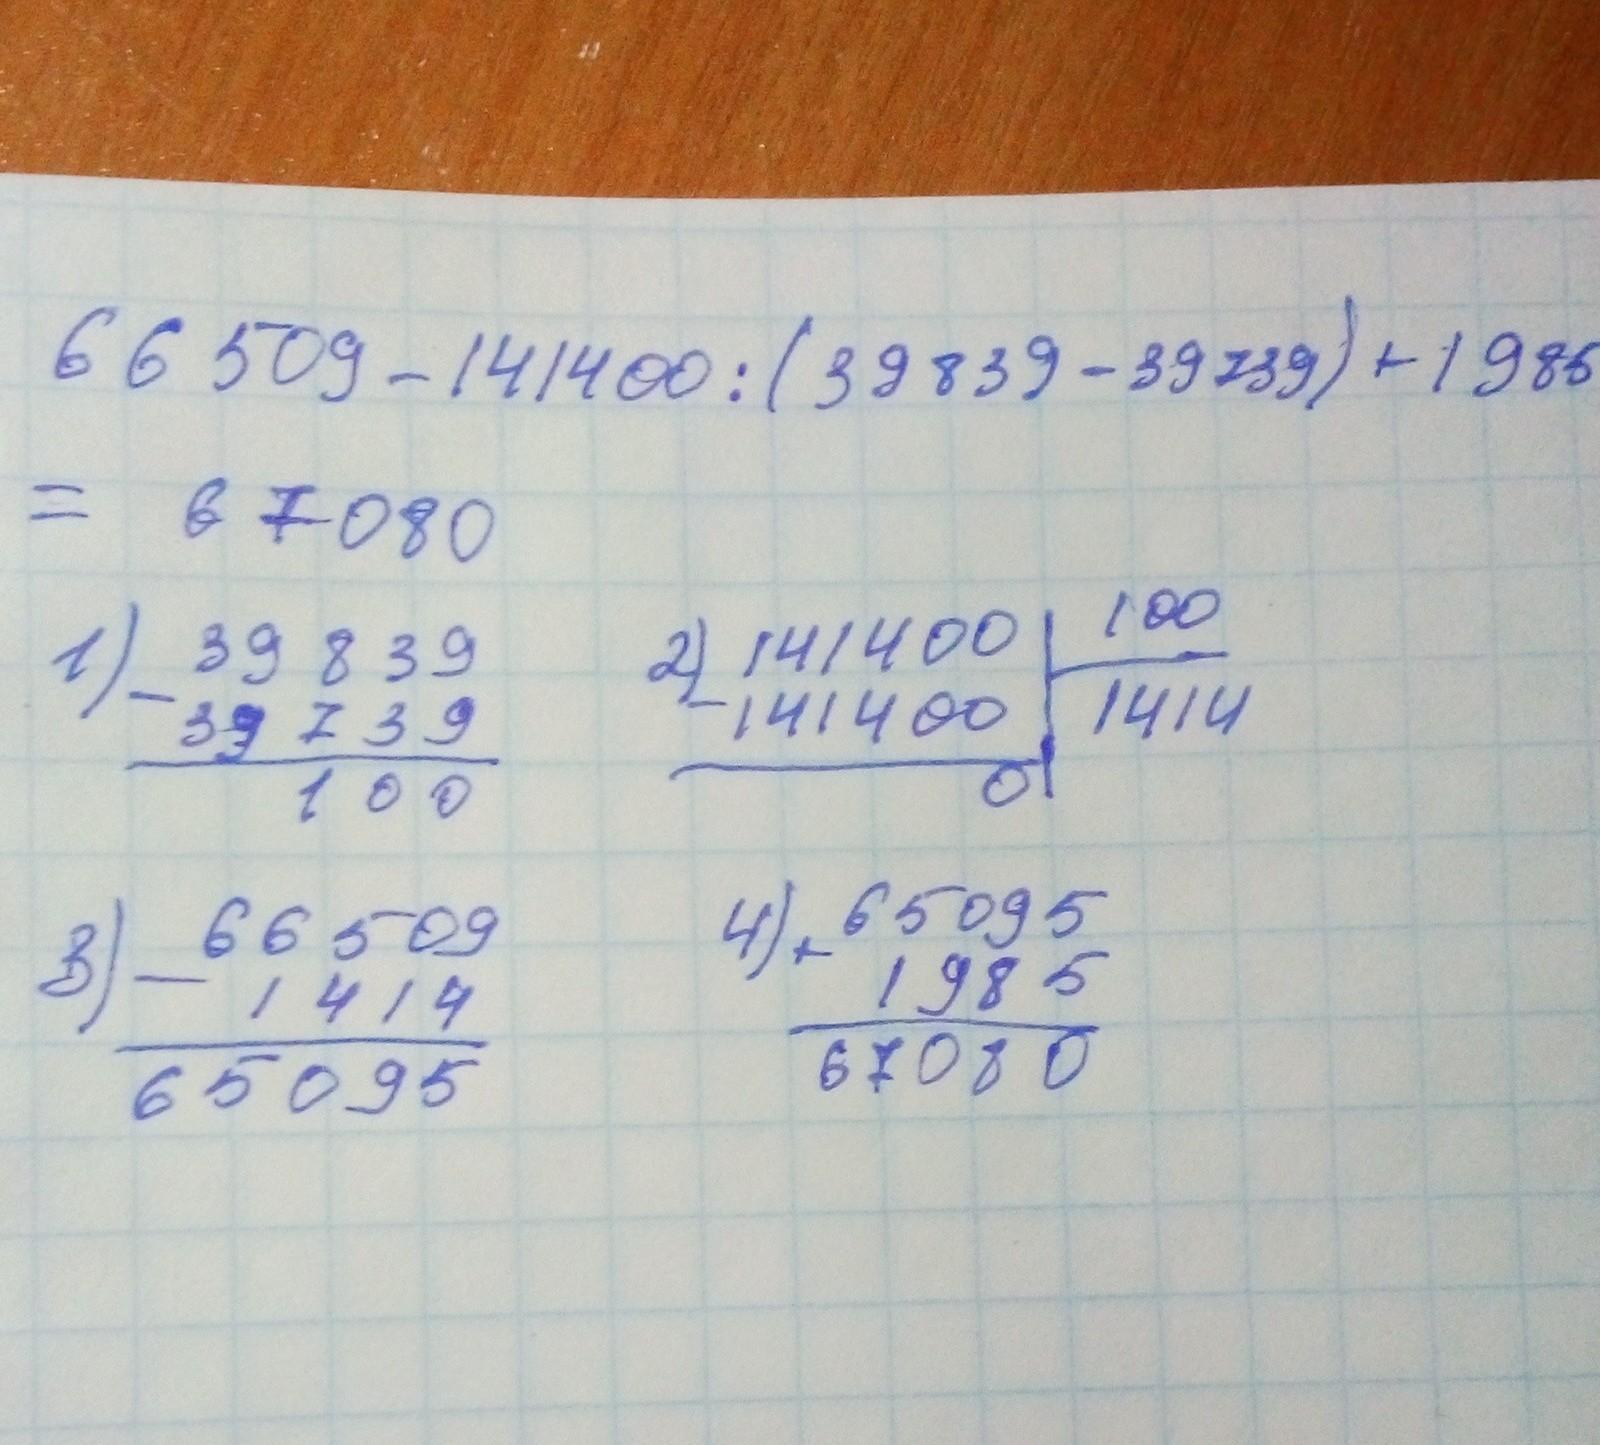 66509-141400:(39839-39739)+1985
= 67080
1) - 39839
39739
100
2) - 141400 | 100
141400 | 1414
0
3) - 66509
1414
65095
4) + 65095
1985
67080